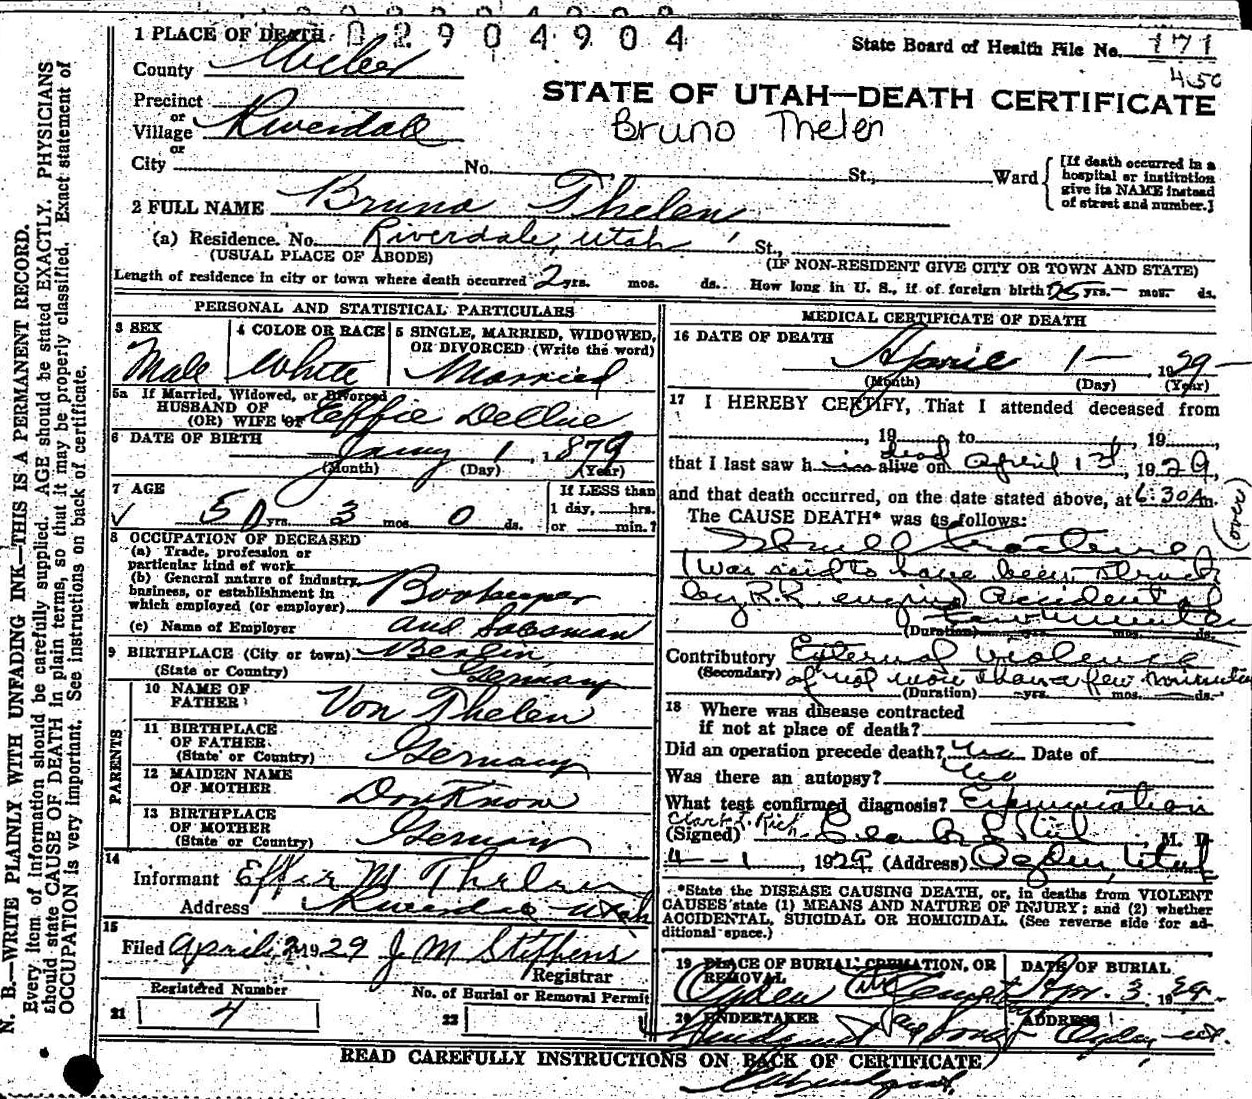 02904904
1 PLACE OF DEATH
State Board of Health File No. 171
450
County Weber
STATE OF UTAH—DEATH CERTIFICATE
Bruno Thelen
Precinct
or
Village Riverdale
or
City No. St., Ward
[If death occurred in a
hospital or institution
give its NAME instead
of street and number.]
2 FULL NAME Bruno Thelen
(a) Residence. No. Riverdale, Utah St.,
(USUAL PLACE OF ABODE) (IF NON-RESIDENT GIVE CITY OR TOWN AND STATE)
Length of residence in city or town where death occurred 2 yrs. mos. ds. How long in U. S., if of foreign birth? 25 yrs. — mos. ds.
PERSONAL AND STATISTICAL PARTICULARS
3 SEX
Male
4 COLOR OR RACE
White
5 SINGLE, MARRIED, WIDOWED,
OR DIVORCED (Write the word)
Married
5a If Married, Widowed, or Divorced
HUSBAND OF
(OR) WIFE OF Effie
6 DATE OF BIRTH
Jany 1, 1879
(Month) (Day) (Year)
7 AGE
50 yrs. 3 mos. 0 ds.
If LESS than
1 day, hrs.
or min.?
8 OCCUPATION OF DECEASED
(a) Trade, profession or
particular kind of work
(b) General nature of industry,
business, or establishment in
which employed (or employer) Bookeeper
(c) Name of Employer and Salesman
9 BIRTHPLACE (City or town) Berlin
(State or Country) Germany
PARENTS
10 NAME OF
FATHER Von Thelen
11 BIRTHPLACE
OF FATHER
(State or Country) Germany
12 MAIDEN NAME
OF MOTHER Dont Know
13 BIRTHPLACE
OF MOTHER
(State or Country) Germany
14
Informant Effie M Thelen
Address Riverdale Utah
15
Filed April 2 1929 J M Stiffens
Registrar
Registered Number
21 4
No. of Burial or Removal Permit
22
MEDICAL CERTIFICATE OF DEATH
16 DATE OF DEATH
April 1— 1929
(Month) (Day) (Year)
17 I HEREBY CERTIFY, That I attended deceased from
, 19 to , 19 ,
that I last saw him dead alive on April 1st, 1929,
and that death occurred, on the date stated above, at 6:30 A m.
(over)
The CAUSE DEATH* was as follows:
Skull fracture
(Was said to have been struck
by R.R. engine) Accidental
(Duration) yrs. mos. ds.
Contributory External violence
(Secondary) of not more than a few minutes
(Duration) yrs. mos. ds.
18 Where was disease contracted
if not at place of death?
Did an operation precede death? Date of
Was there an autopsy? No
What test confirmed diagnosis? Examination
Clark L. Rich
(Signed) M. D.
4-1, 1929 (Address) Ogden, Utah
*State the DISEASE CAUSING DEATH, or, in deaths from VIOLENT
CAUSES state (1) MEANS AND NATURE OF INJURY; and (2) whether
ACCIDENTAL, SUICIDAL OR HOMICIDAL. (See reverse side for ad-
ditional space.)
19 PLACE OF BURIAL, CREMATION, OR
REMOVAL
Ogden City Cemetery
DATE OF BURIAL
Apr. 3 1929
20 UNDERTAKER
Lindquist and Sons
ADDRESS
Ogden Ut.
READ CAREFULLY INSTRUCTIONS ON BACK OF CERTIFICATE
N. B.—WRITE PLAINLY WITH UNFADING INK—THIS IS A PERMANENT RECORD.
Every item of information should be carefully supplied. AGE should be stated EXACTLY. PHYSICIANS
should state CAUSE OF DEATH in plain terms, so that it may be properly classified. Exact statement of
OCCUPATION is very important. See instructions on back of certificate.